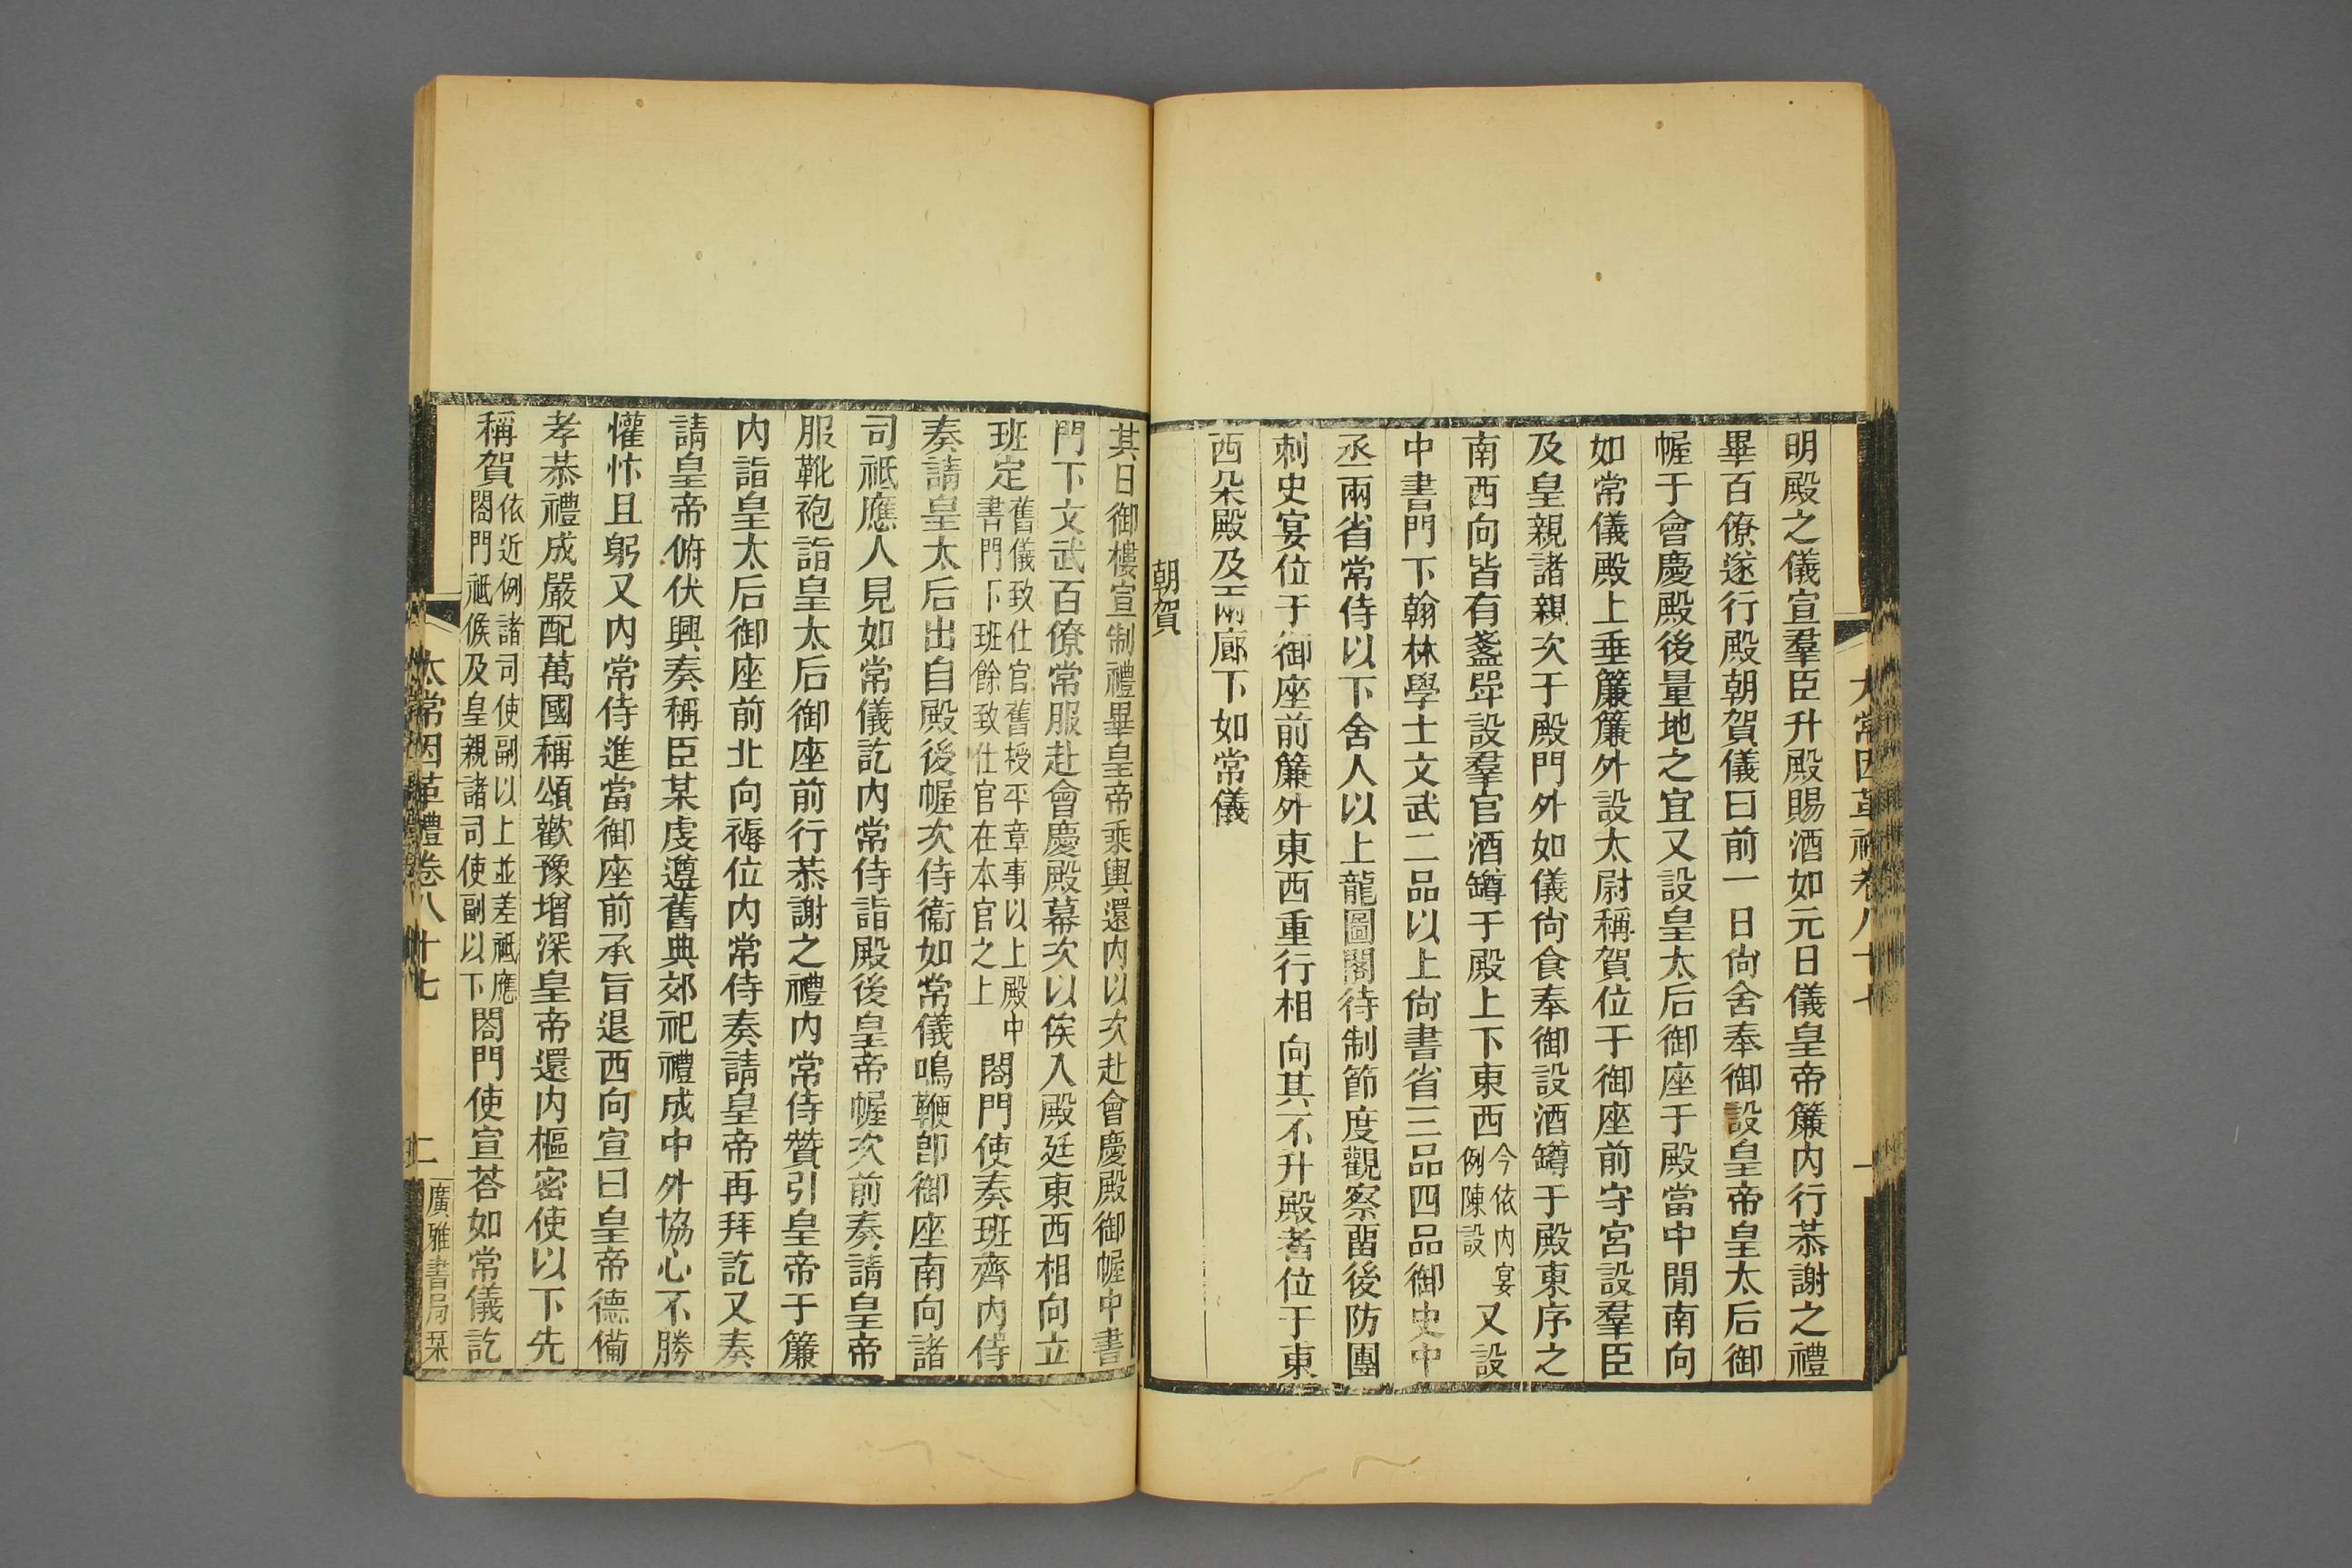 太常因革禮卷八十七
一
明殿之儀宣羣臣升殿賜酒如元日儀皇帝簾内行恭謝之禮
畢百僚遂行殿朝賀儀曰前一日尙舍奉御設皇帝皇太后御
幄于會慶殿後量地之宜又設皇太后御座于殿當中閒南向
如常儀殿上垂簾簾外設太尉稱賀位于御座前守宮設羣臣
及皇親諸親次于殿門外如儀尙食奉御設酒罇于殿東序之
南西向皆有盞斝設羣官酒罇于殿上下東西今依内宴例陳設又設
中書門下翰林學士文武二品以上尙書省三品四品御史中
丞兩省常侍以下舍人以上龍圖閣待制節度觀察留後防團
刺史宴位于御座前簾外東西重行相向其不升殿者位于東
西朵殿及兩廊下如常儀
朝賀
其日御樓宣制禮畢皇帝乘輿還内以次赴會慶殿御幄中書
門下文武百僚常服赴會慶殿幕次以俟入殿廷東西相向立
班定舊儀致仕官舊授平章事以上殿中書門下班餘致仕官在本官之上閤門使奏班齊内侍
奏請皇太后出自殿後幄次侍衞如常儀鳴鞭卽御座南向諸
司祗應人見如常儀訖内常侍詣殿後皇帝幄次前奏請皇帝
服靴袍詣皇太后御座前行恭謝之禮内常侍贊引皇帝于簾
内詣皇太后御座前北向褥位内常侍奏請皇帝再拜訖又奏
請皇帝俯伏興奏稱臣某虔遵舊典郊祀禮成中外協心不勝
懽忭且躬又内常侍進當御座前承旨退西向宣曰皇帝德備
孝恭禮成嚴配萬國稱頌歡豫增深皇帝還内樞密使以下先
稱賀依近例諸司使副以上並差祗應閤門祗候及皇親諸司使副以下閤門使宣荅如常儀訖
太常因革禮卷八十七
二
廣雅書局栞